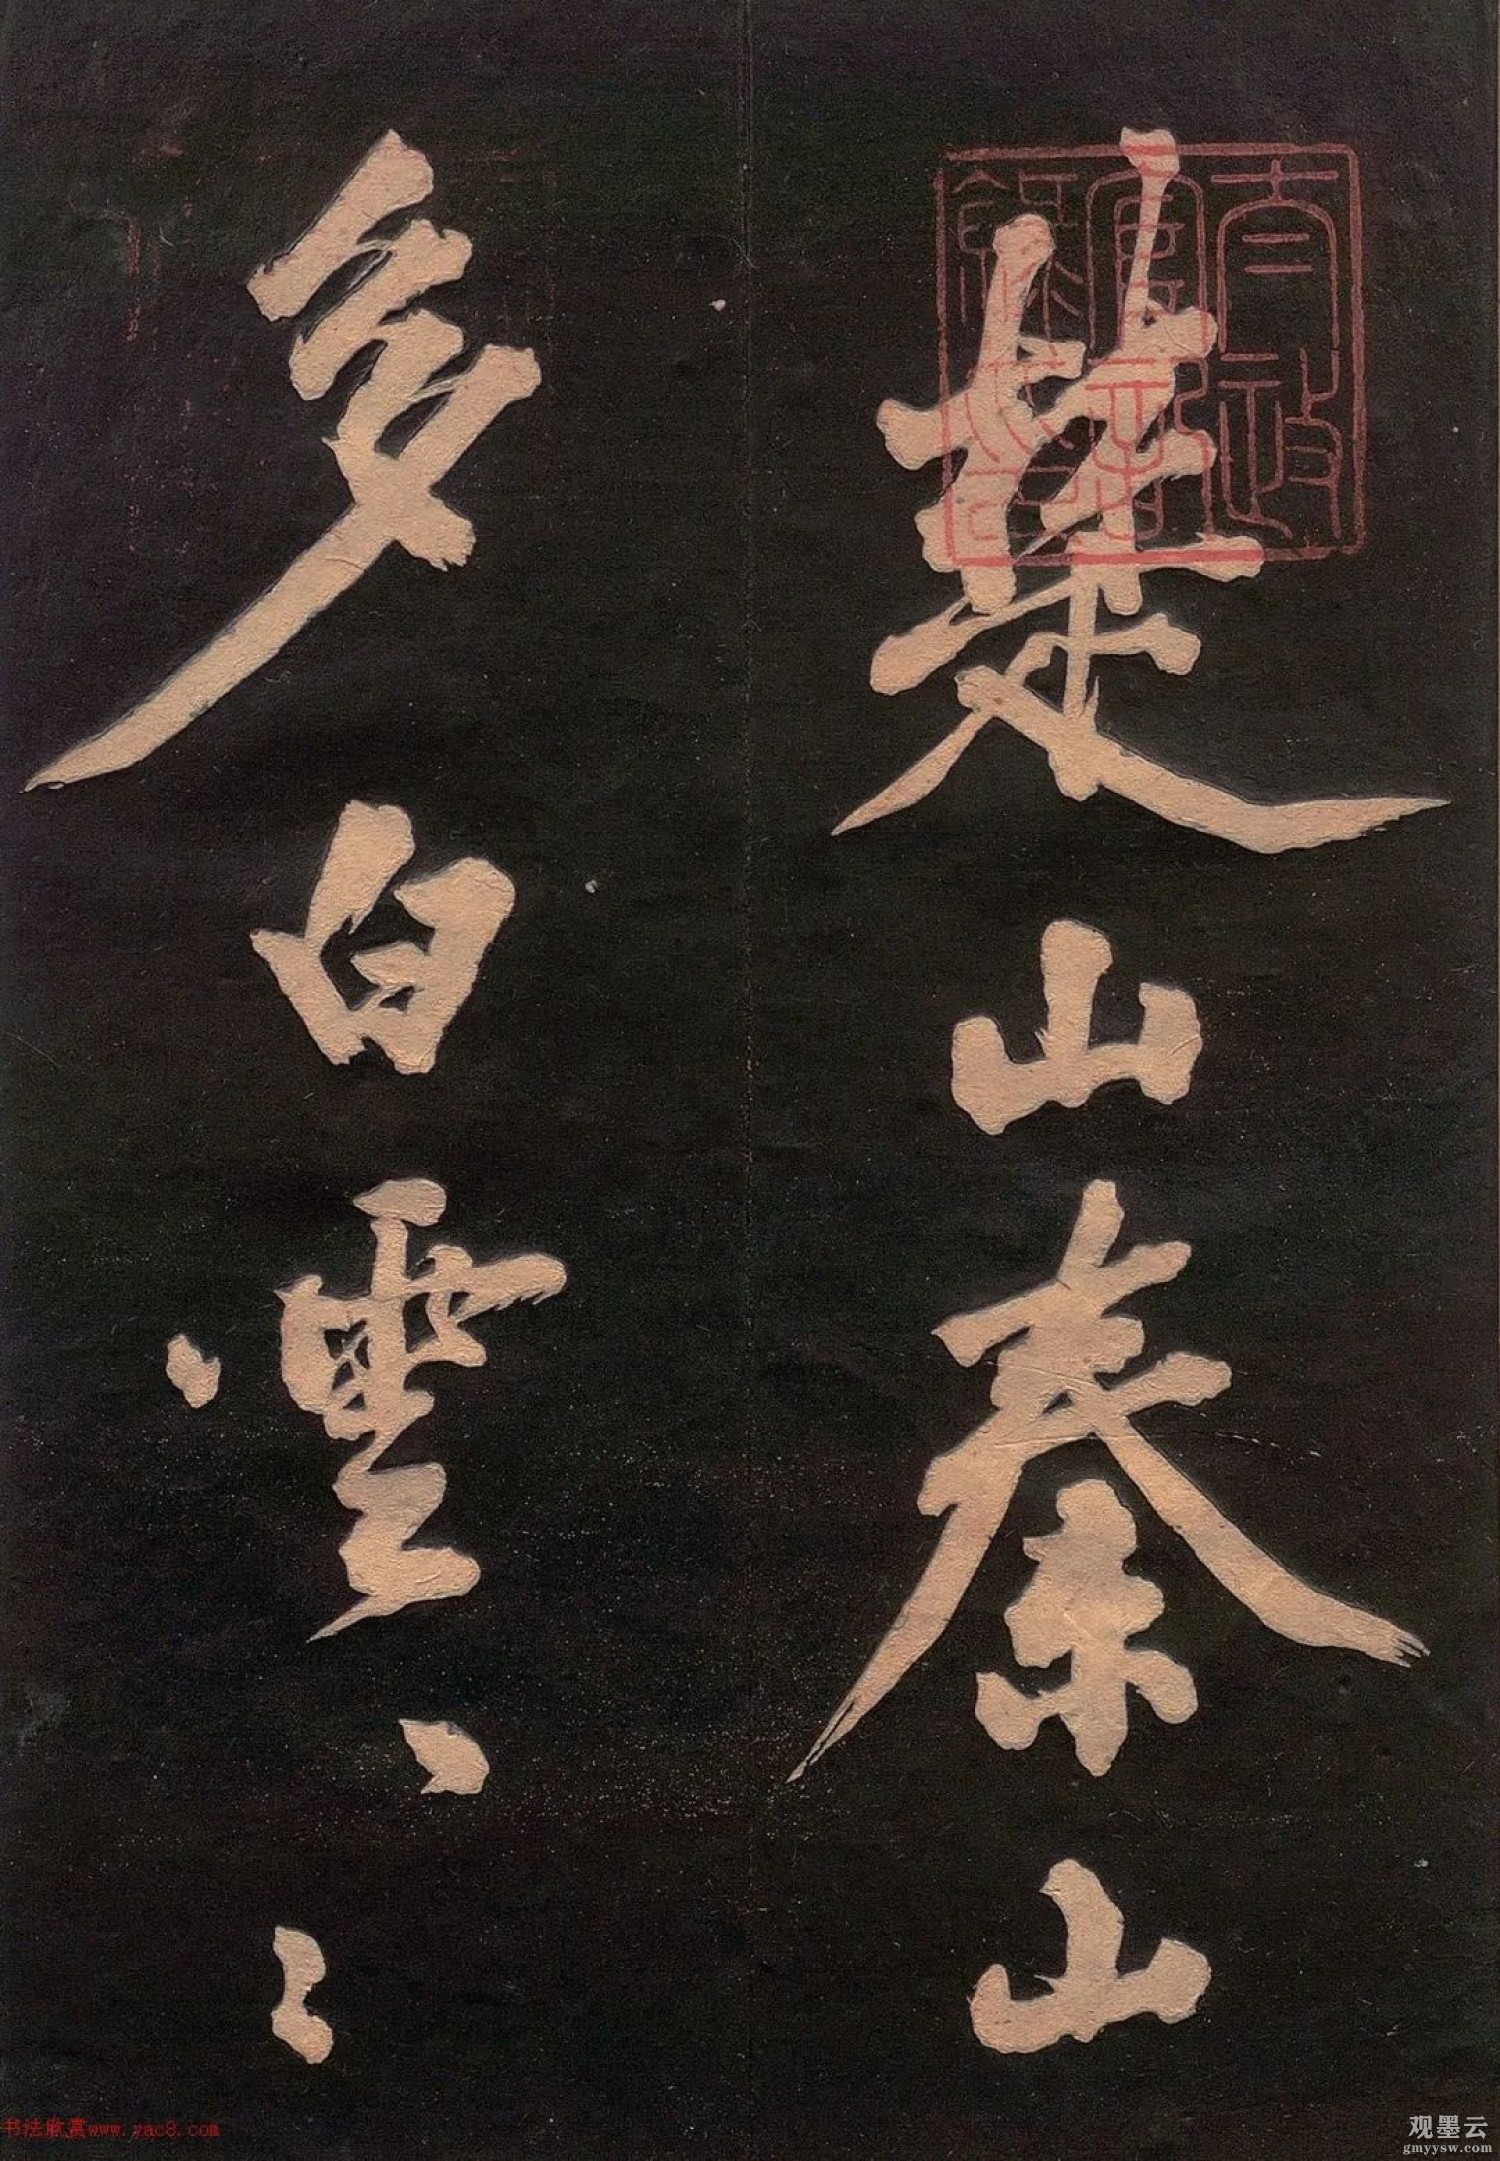 楚山秦山
多白雲〻〻
书法欣赏www.yac8.com
观墨云
gmyysw.com